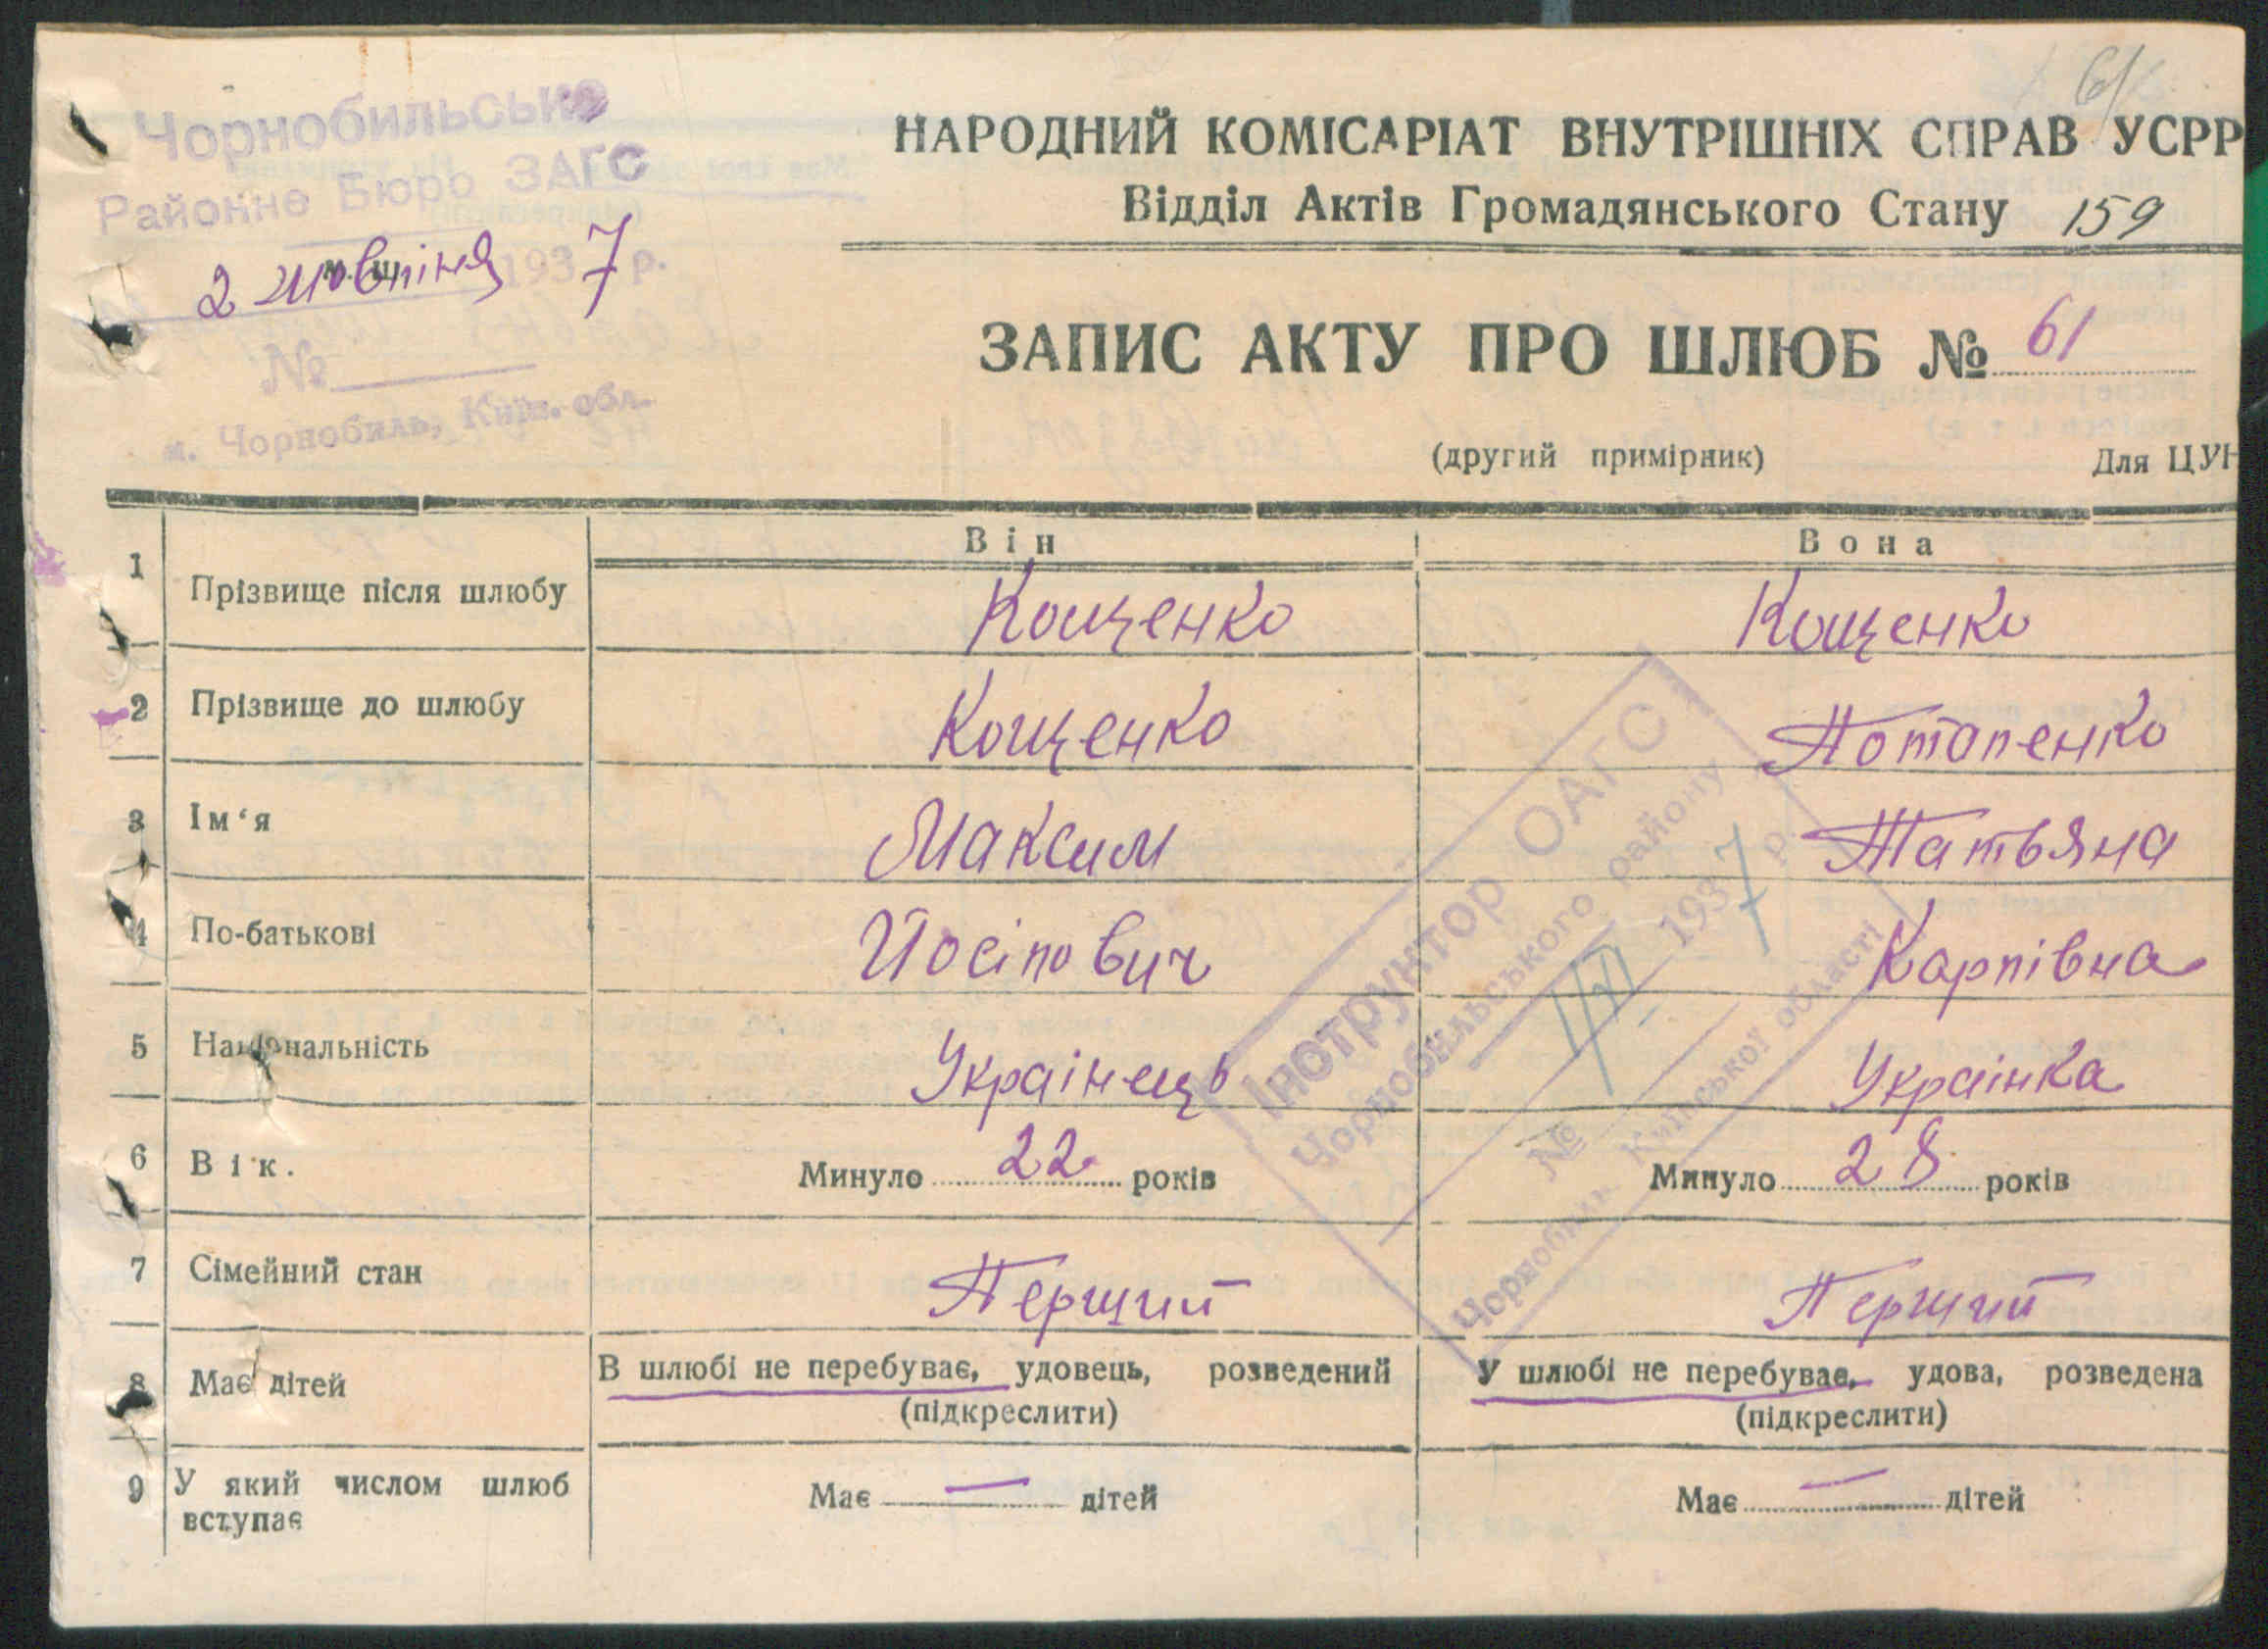 61
Чорнобильське
Районне Бюро ЗАГС
2 жовтня 1937 р.
№
м. Чорнобиль, Київ. обл.
НАРОДНИЙ КОМІСАРІАТ ВНУТРІШНІХ СПРАВ УСРР
Відділ Актів Громадянського Стану 159
ЗАПИС АКТУ ПРО ШЛЮБ № 61
(другий примірник) Для ЦУН
Він Вона
1 Прізвище після шлюбу Кощенко Кощенко
2 Прізвище до шлюбу Кощенко Потопенко
3 Ім‘я Максим Татьяна
4 По-батькові Йосіпович Карпівна
5 Національність Українець Українка
6 Вік. Минуло 22 років Минуло 28 років
7 Сімейний стан Перщий Перщий
8 Має дітей В шлюбі не перебуває, удовець, розведений У шлюбі не перебуває, удова, розведена
(підкреслити) (підкреслити)
9 У який числом шлюб вступає Має — дітей Має — дітей
Інструктор ОАГС
Чорнобильського району
1937 р.
№
Чорнобиль Київської області